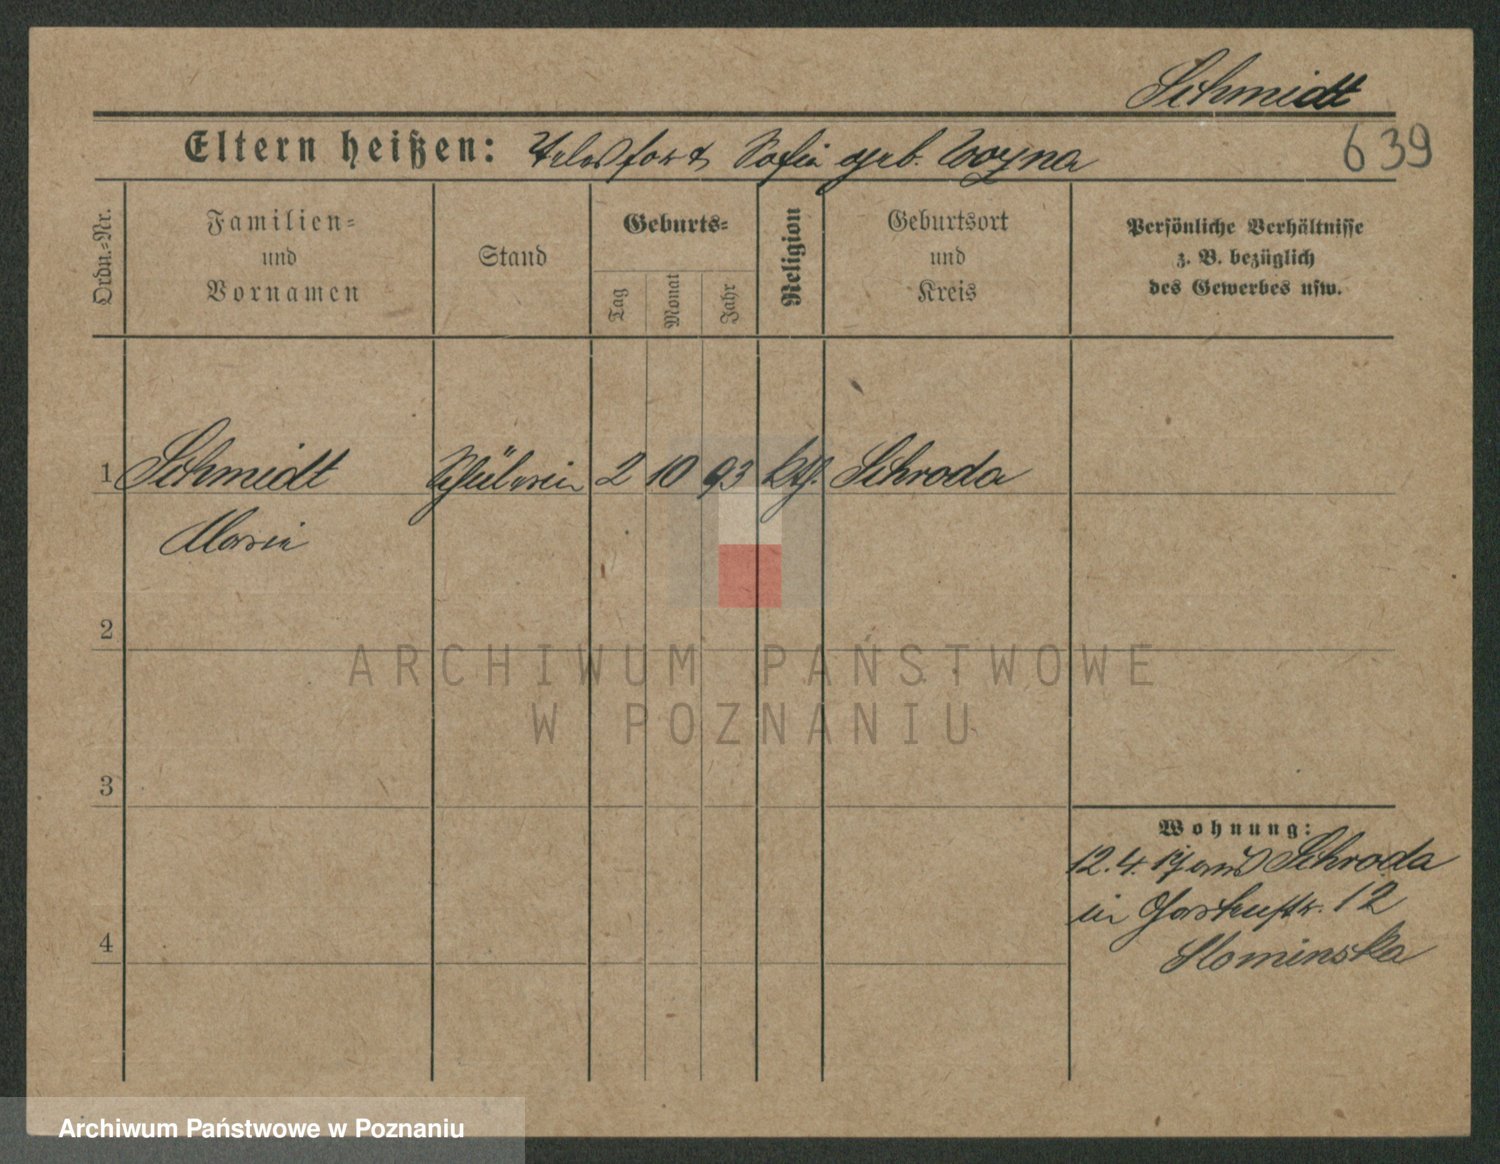 Schmidt
Eltern heißen: Telesfor & Sofie geb. Woyna
639
Ordn.-Nr.
Familien=
und
Vornamen
Stand
Geburts=
Tag
Monat
Jahr
Religion
Geburtsort
und
Kreis
Persönliche Verhältnisse
z. B. bezüglich
des Gewerbes usw.
1 Schmidt Schülerin 2 10 93 kth. Schroda
Marie
2
ARCHIWUM PAŃSTWOWE
W POZNANIU
3
Wohnung:
12.4.17 aus Schroda
in 12
4
Slominska
Archiwum Państwowe w Poznaniu